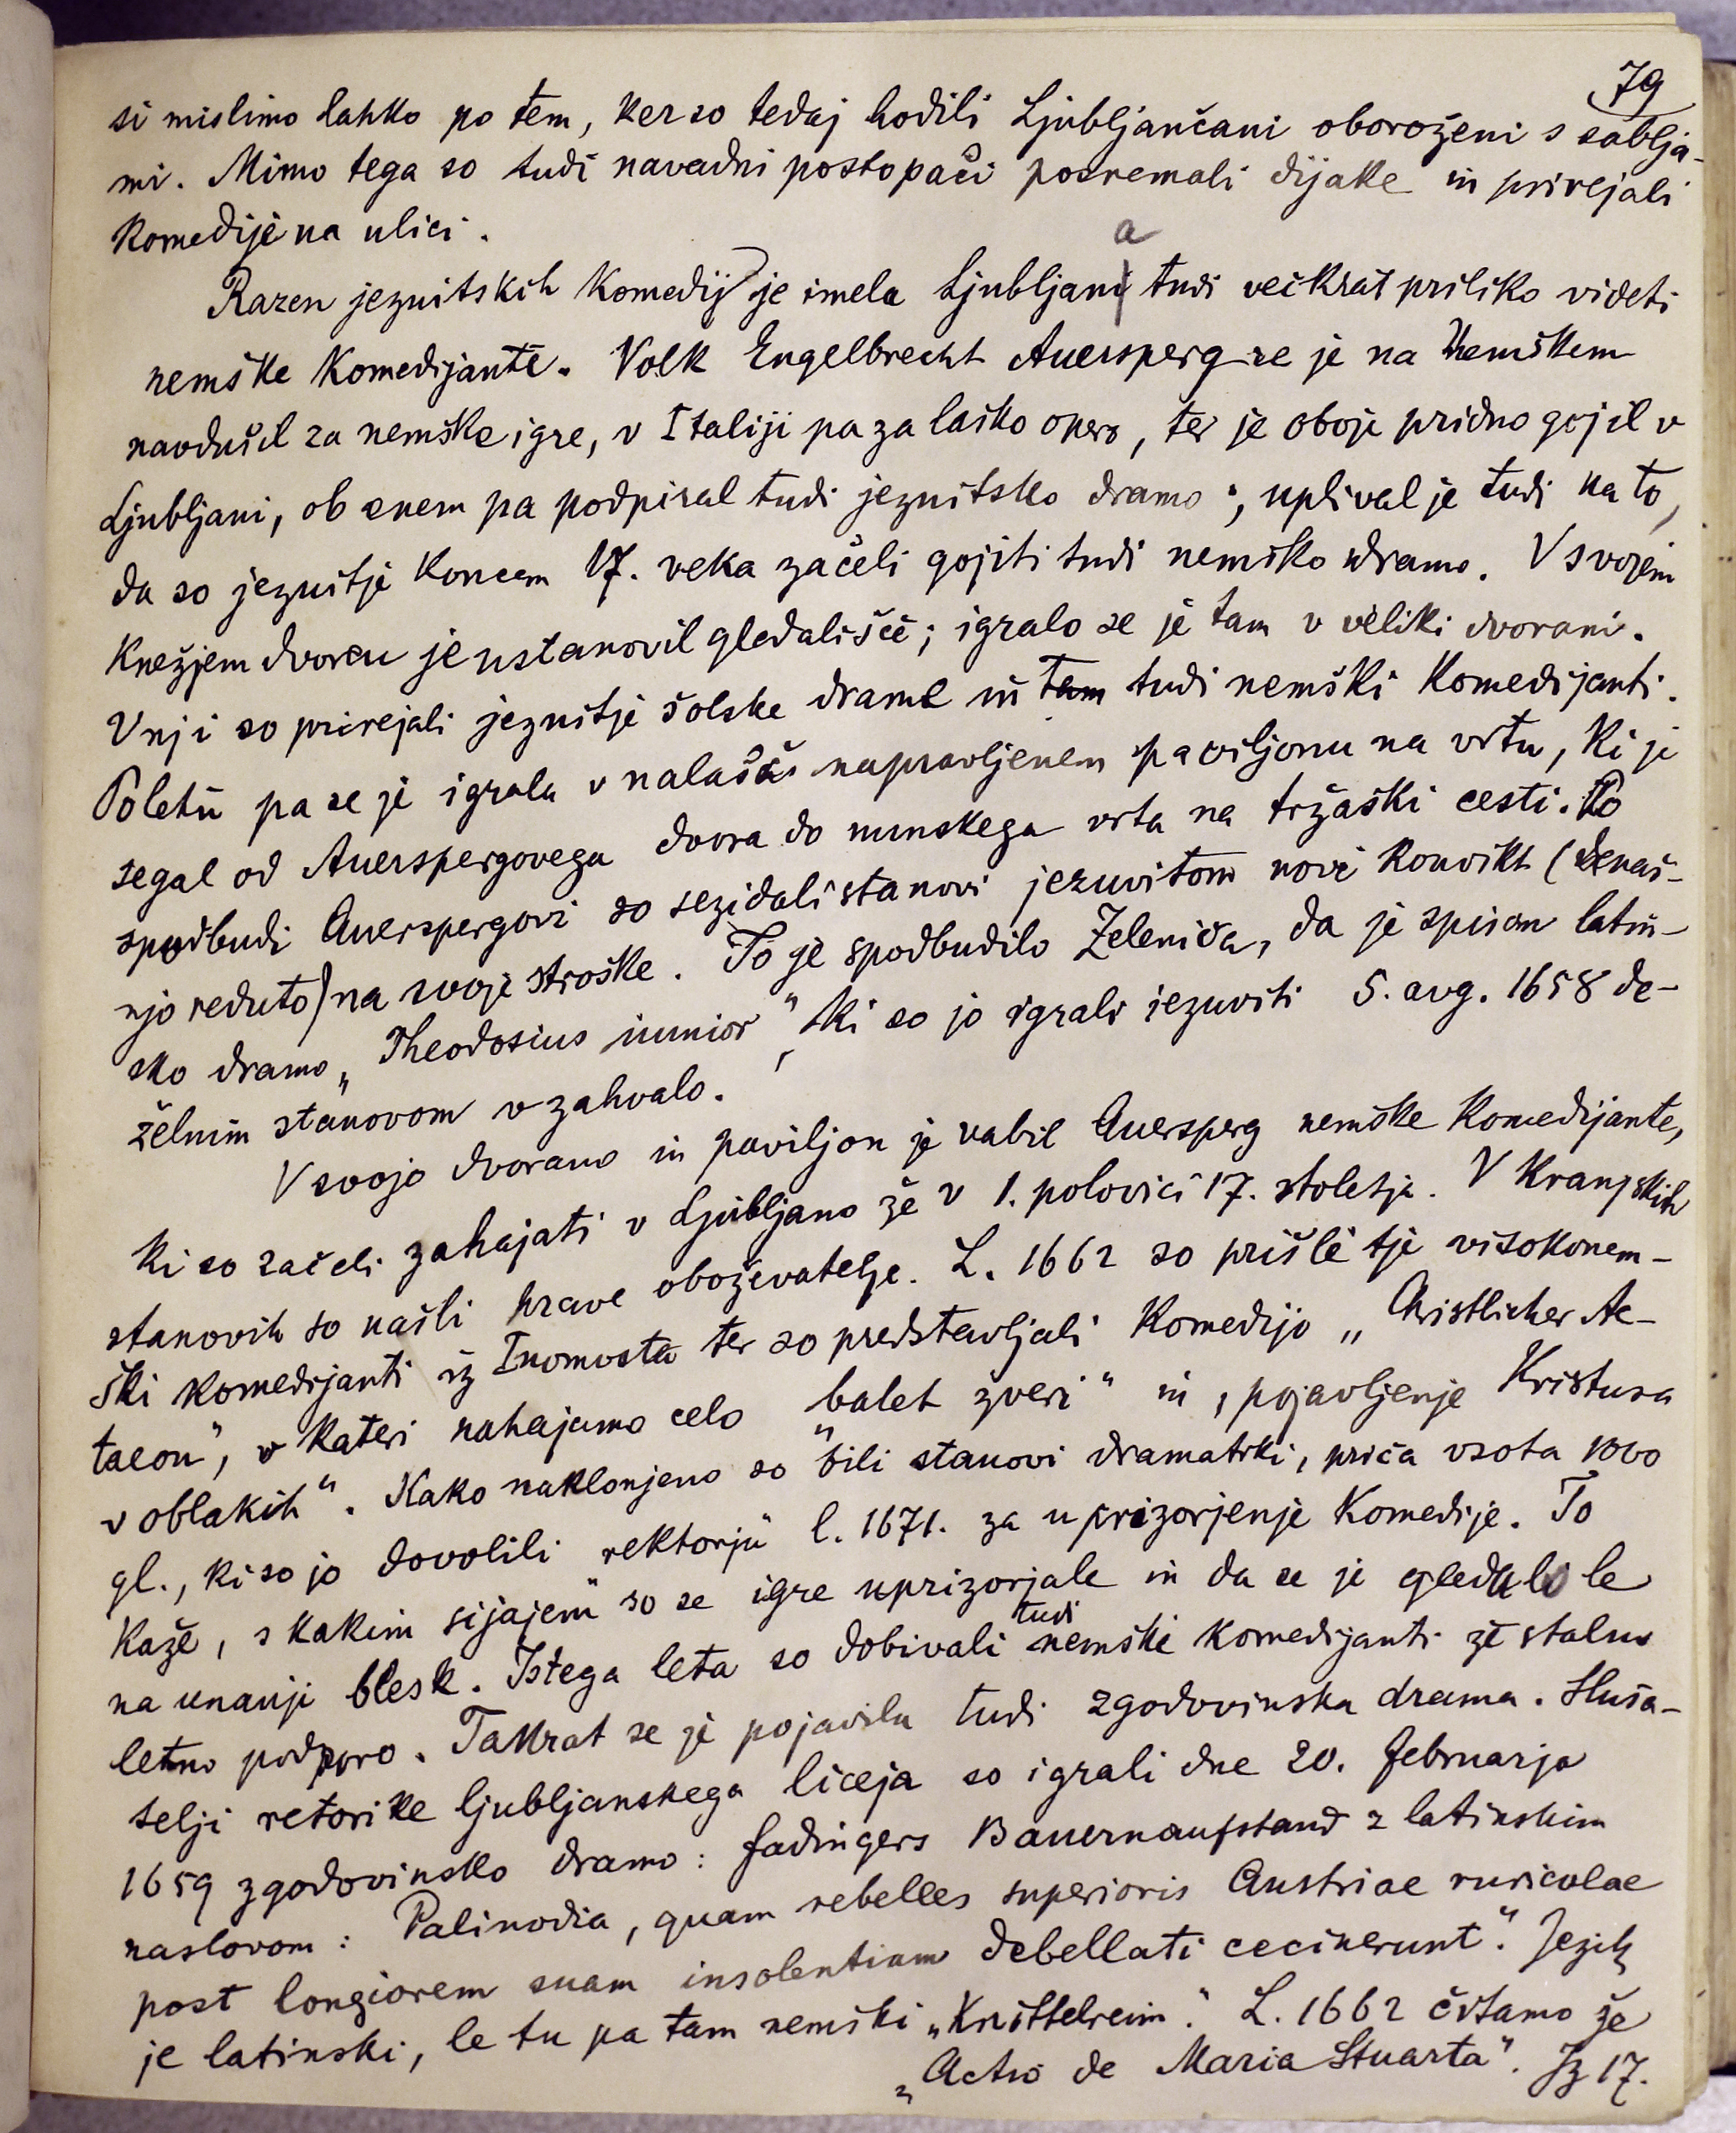 79
si mislimo lahko po tem, ker so tedaj hodili Ljubljančani oboroženi s sablja-
mi. Mimo tega so tudi navadni postopači posnemali dijake in prirejali
komedije na ulici.
Razen jezuitskih komedij je imela Ljubljana tudi večkrat priliko videti
nemške komedijante. Volk Engelbrecht Auersperg se je na Nemškem
navdušil za nemške igre, v Italiji pa za laško opero, ter je oboje pridno gojil v
Ljubljani, ob enem pa podpiral tudi jezuitsko dramo; uplival je tudi na to,
da so jezuitje koncem 17. veka začeli gojiti tudi nemško dramo. V svojem
knežjem dvorcu je ustanovil gledališče; igralo se je tam v veliki dvorani.
V nji so prirejali jezuitje šolske drame in tam tudi nemški komedijanti.
Poletu pa se je igralo v nalašč napravljenem paviljonu na vrtu, ki je
segal od Auerspergovega dvora do nunskega vrta na tržaški cesti. Po
spodbudi Auerspergovi so sezidali stanovi jezuvitom novi konvikt (denaš-
njo reduto) na svoje stroške. To je spodbudilo Zeleniča, da je spisan latin-
sko dramo „Theodosius iunior", ki so jo igrali jezuviti 5. avg. 1658 de-
želnim stanovom v zahvalo.
V svojo dvorano in paviljon je vabil Auersperg nemške komedijante,
ki so začeli zahajati v Ljubljano že v 1. polovici 17. stoletja. V kranjskih
stanovih so našli prave oboževatelje. L. 1662 so prišle tje visokonem-
ški komedijanti iz Inomosta ter so predstavljali komedijo „Christlicher Ac-
taeon", v kateri nahajamo celo „balet zveri" in „pojavljenje Kristusa
v oblakih". Kako naklonjeno so bili stanovi dramatiki, priča vsota 1000
gl., ki so jo dovolili rektorju l. 1671. za uprizorjenje komedije. To
kaže, s kakim sijajem so se igre uprizorjale in da se je gledalo le
na unanji blesk. Istega leta so dobivali tudi nemški komedijanti že stalno
letno podporo. Takrat se je pojavila tudi zgodovinska drama. Sluša-
telji retorike ljubljanskega liceja so igrali dne 20. februarja
1659 zgodovinsko dramo: Fadingers Bauernaufstand z latinskim
naslovom: Palinodia, quam rebelles superioris Austriae ruricolae
post longiorem suam insolentiam debellati cecinerunt". Jezik
je latinski, le tu pa tam nemški „Knittelreim". L. 1662 čitamo že
„Actio de Maria Stuarta". Iz 17.